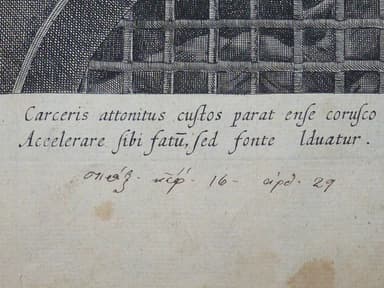 Carceris attonitus custos parat ense corusco
Accelerare sibi fatũ, sed fonte lduatur.
πραξ. κεφ. 16 - αριθ. 29